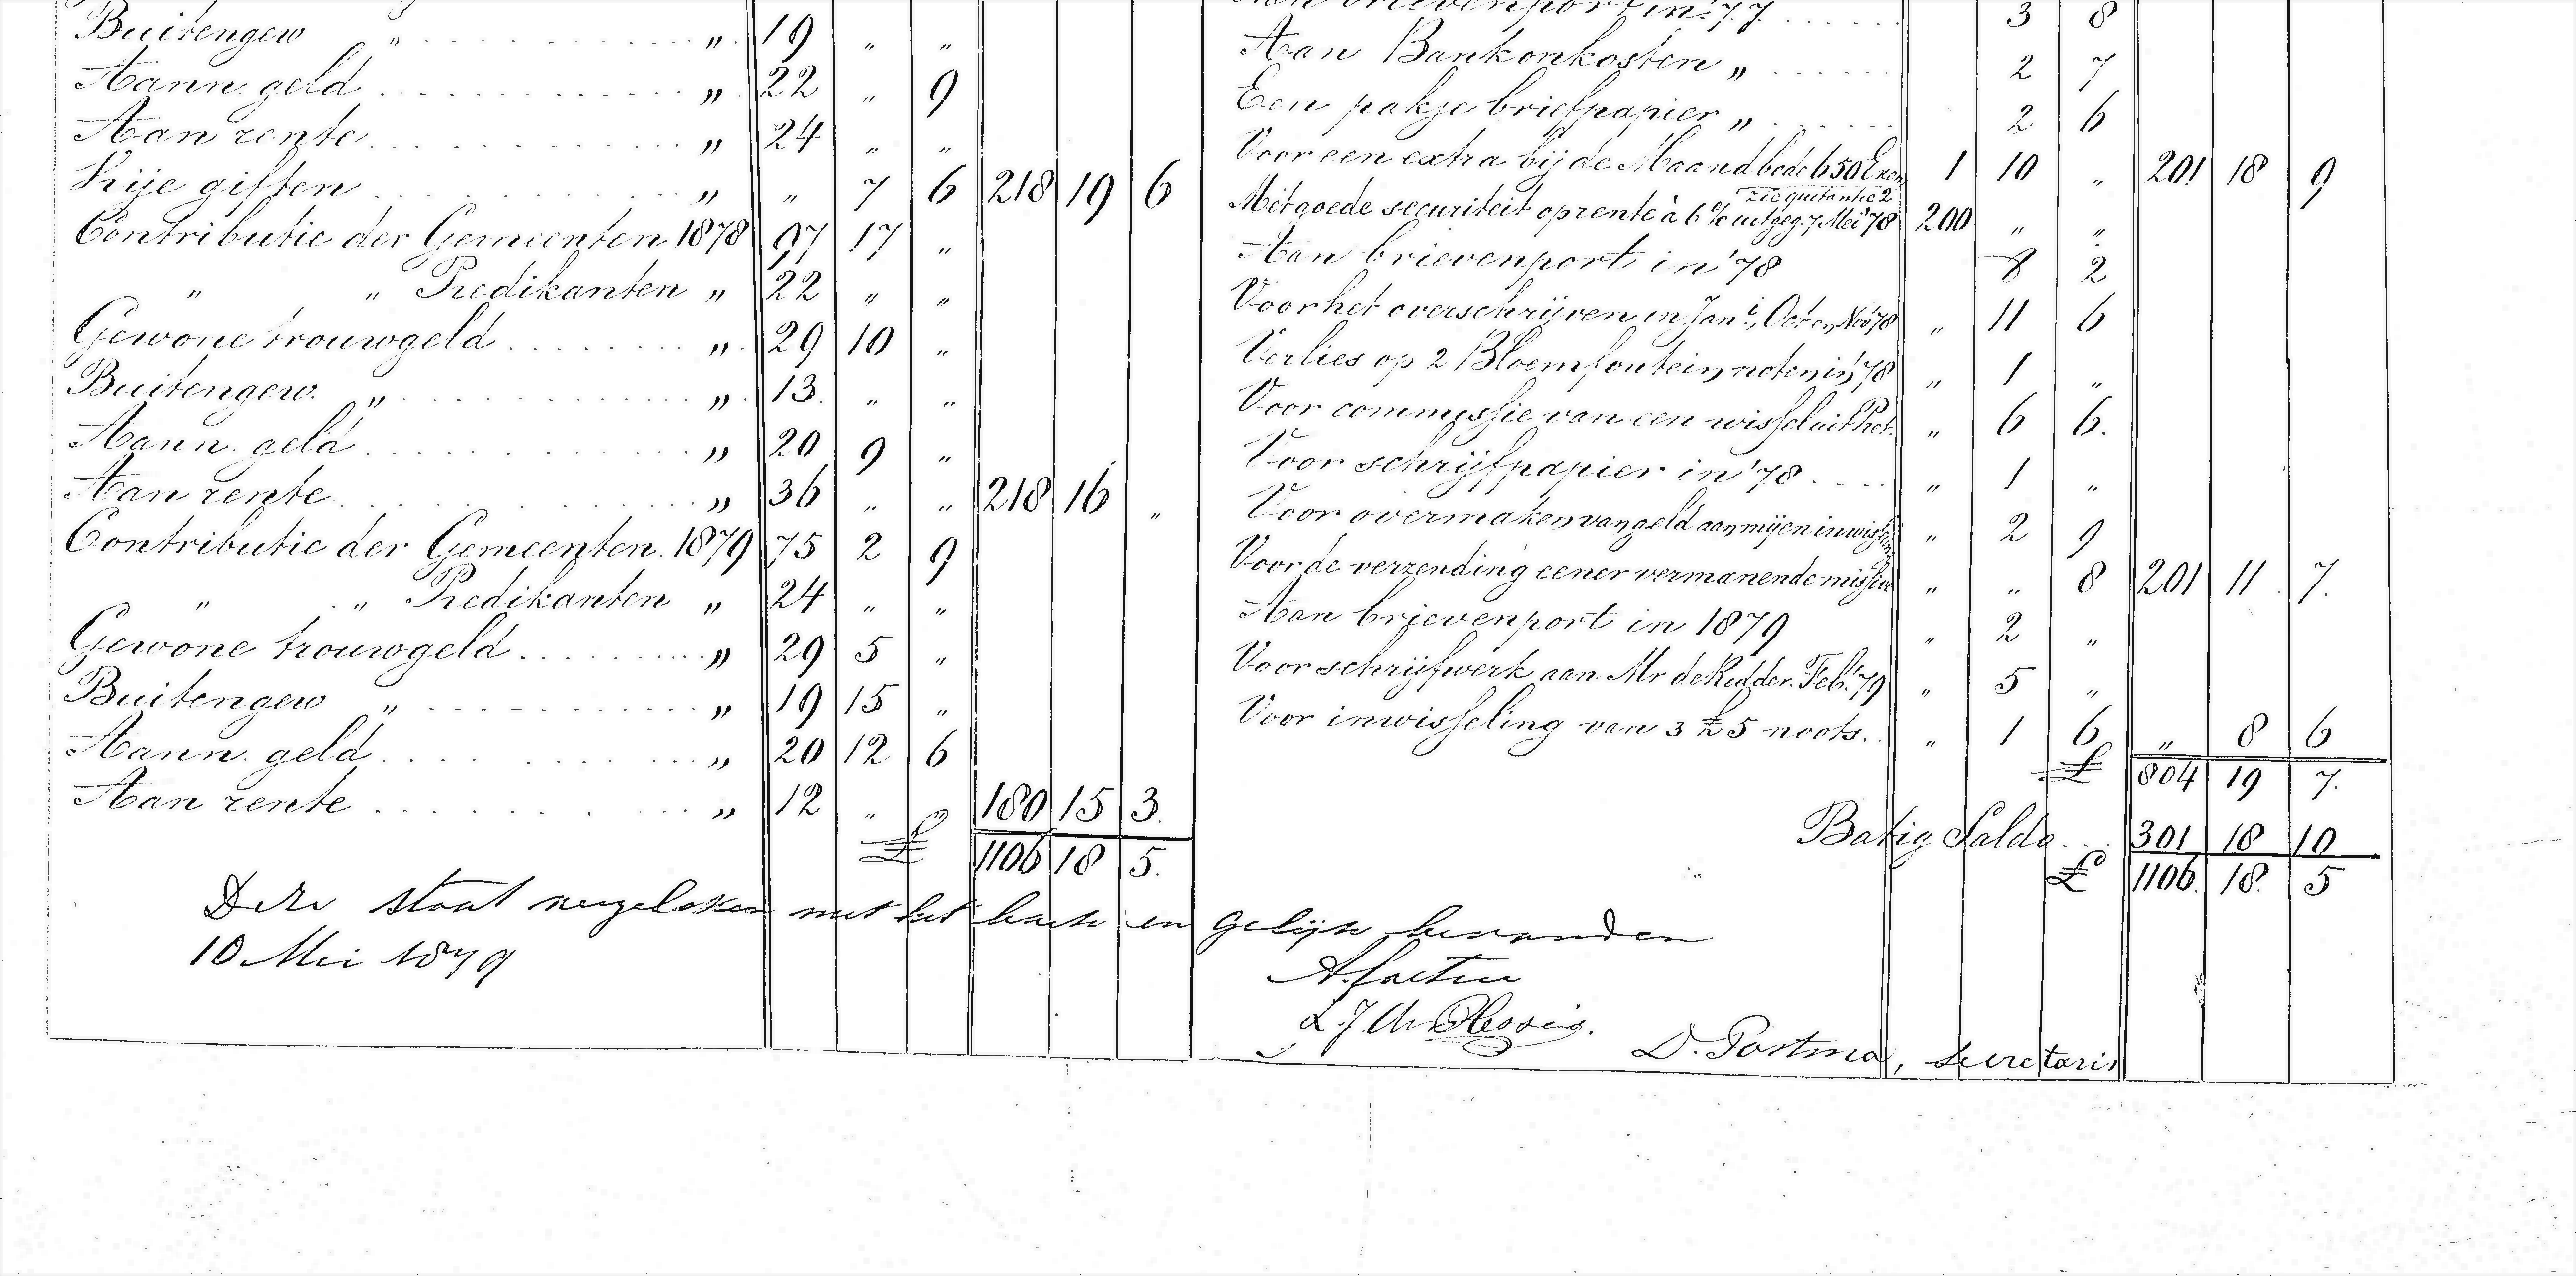 Buitengew " " 19 " "
Aann. geld " 22 " 9
Aan rente " 24 " "
Vrije giften " " 7 6 218 19 6
Contributie der Gemeenten 1878 97 17 "
" " Predikanten " 22 " "
Gewone trouwgeld " 29 10 "
Buitengew. " " 13. " "
Aann. geld " 20 9 "
Aan rente " 36 " " 218 16 "
Contributie der Gemeenten. 1879 75 2 9
" " Predikanten " 24 " "
Gewone trouwgeld " 29 5 "
Buitengew " " 19 15 "
Aann. geld " 20 12 6
Aan rente " 12 " " 180 15 3.
£ 1106 18 5.
Aan brievenport in '77 3 8
Aan Bankonkosten " 2 7
Een pakje briefpapier " 2 6
Voor een extra bij de Maandbode 650 Exen 1 10 " 201 18 9
zie quitantie 2
Met goede securiteit op rente à 6 % uitgeg. 7 Mei '78 200 " "
Aan brievenport in '78 8 2
Voor het overschrijven in Jani, Oct en Nov '78 " 11 6
Verlies op 2 Bloemfontein noten in '78 " 1 "
Voor commissie van een wissel uit Pet. " 6 6.
Voor schrijfpapier in '78 " 1 "
Voor overmaken van geld aan mij en inwissling " 2 9
Voor de verzending eener vermanende missive " " 8 201 11 7.
Aan brievenport in 1879 " 2 "
Voor schrijfwerk aan Mr de Ridder. Feb. '79 " 5 "
Voor inwisseling van 3 £5 noots. " 1 6 " 8 6
£ 804 19 7.
Batig Saldo 301 18 10
£ 1106. 18. 5
Deze staat vergeleken met het boek en gelijk bevonden
10 Mei 1879
L. J. du Plessis.
D. Postma, Secretaris